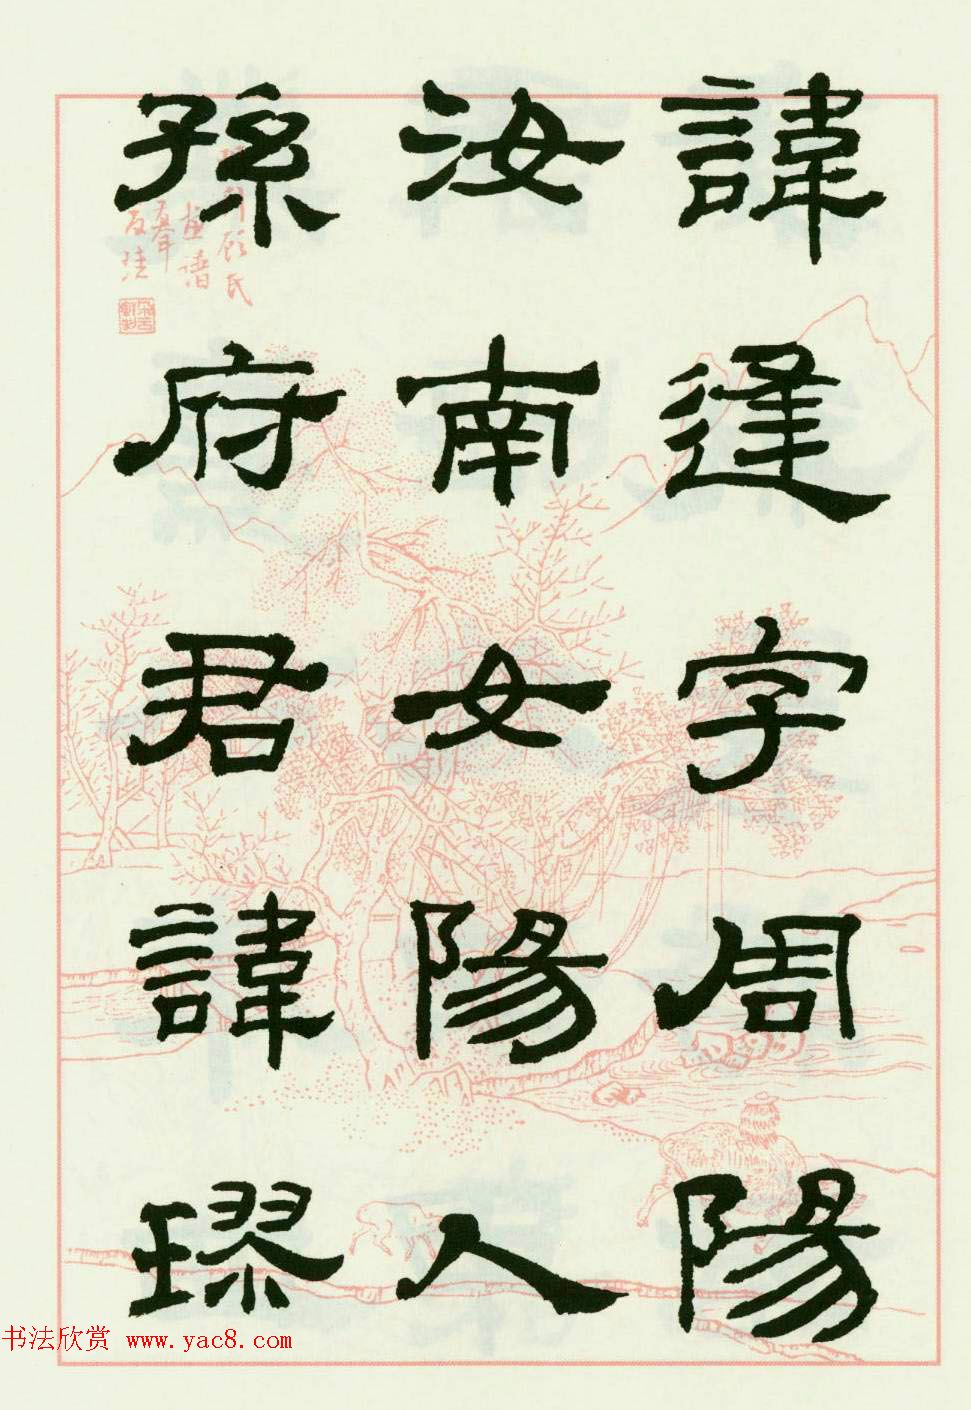 諱逢字周陽
汝南女陽人
孫府君諱璆
顾氏
画谱
书法欣赏 www.yac8.com